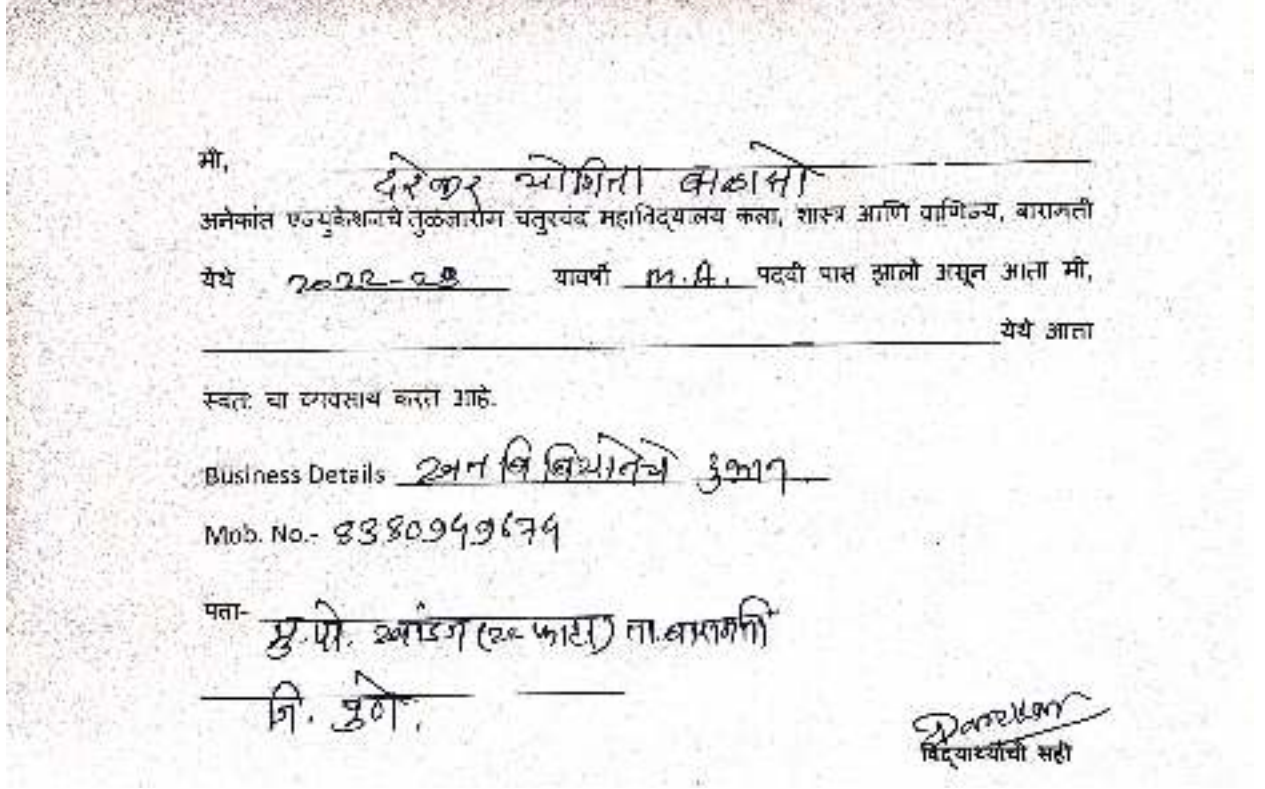 मी, दरेकर योगिता बाळासो
अनेकांत एज्युकेशनचे तुळजाराम चतुरचंद महाविद्यालय कला, शास्त्र आणि वाणिज्य, बारामती
येथे 2022-23 यावर्षी M.A. पदवी पास झालो असून आता मी,
येथे आता
स्वतः चा व्यवसाय करत आहे.
Business Details खत बि बियानेचे दुकान
Mob. No.- 8380949674
पता-
मु.पो. खांडज (22 फाटा) ता.बारामती
जि. पुणे.
Darekar
विद्यार्थ्याची सही